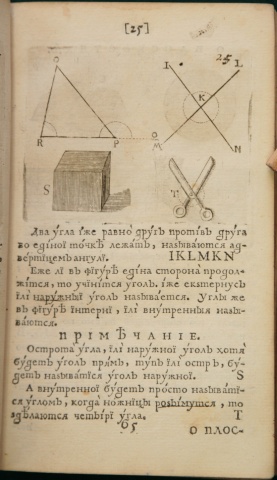 [25]
25
O
I
L
K
R
P
O
M
N
S
T
Два угла їже равно другъ противъ друга
во едіной точкѣ лежатъ, называются ад-
вертіцемъангулї. IKLMKN
Еже лї въ фїгурѣ едіна сторона продол-
жїтся, то учїнїтся уголъ. їже екстернусъ
їлї наружныї уголъ называется. Углы же
въ фїгурѣ їнтернї, їлї внутренныя назы-
ваются.
ПРІМѢЧАНІЕ.
Острота угла, їлї наружної уголъ хотя
будетъ уголъ прямъ, тупъ їлї остръ, бу-
детъ называтїся уголъ наружної. S
А внутренної будетъ просто называтї-
ся угломъ, когда ножнїцы розоымутся, то
здѣлаются четырї угла. T
О ПЛОС-